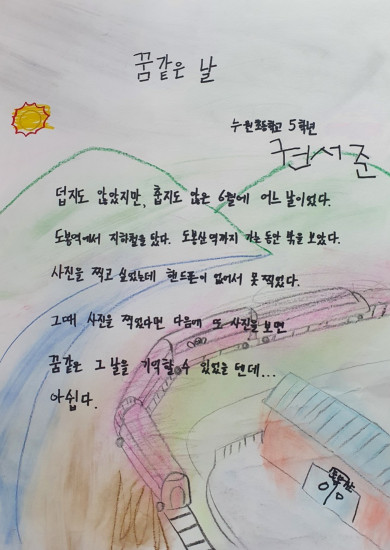 꿈같은 날
누원초등학교 5학년
권서준
덥지도 않았지만, 춥지도 않은 6월에 어느 날이었다.
도봉역에서 지하철을 탔다. 도봉산역까지 가는 동안 밖을 보았다.
사진을 찍고 싶었는데 핸드폰이 없어서 못 찍었다.
그때 사진을 찍었다면 다음에 또 사진을 보면
꿈같은 그 날을 기억할 수 있었을 텐데...
아쉽다.